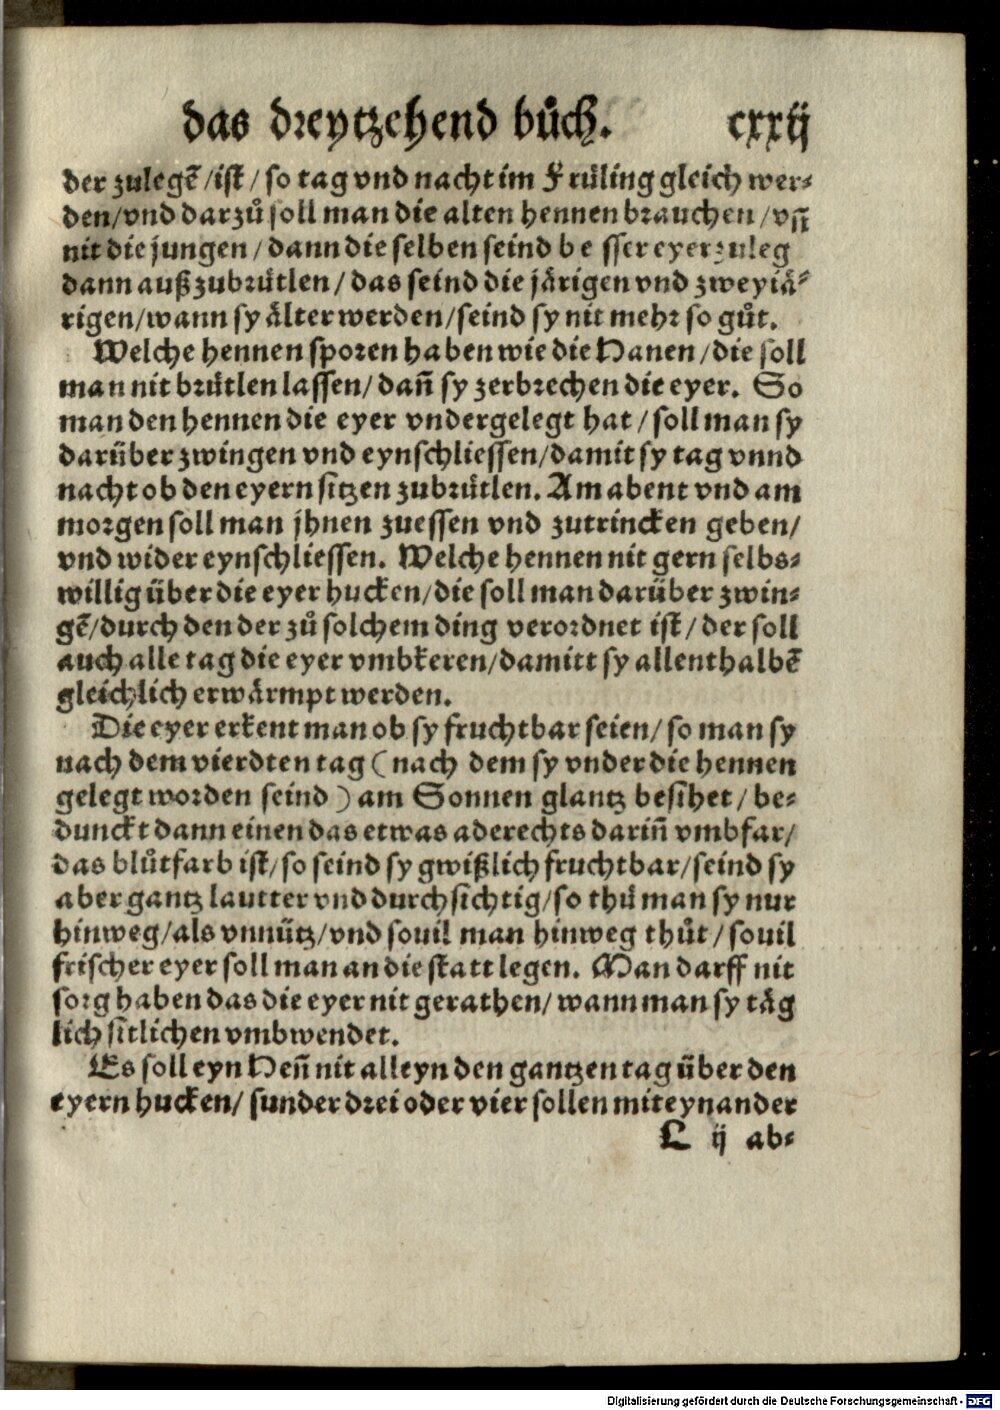 das dreytzehend bůch. cxxij
der zulegẽ/ist/so tag vnd nacht im Früling gleich wer⸗
den/vnd darzů soll man die alten hennen brauchen/vñ
nit die jungen/dann die selben seind besser eyer zuleg
dann außzubrütlen/das seind die järigen vnd zweyiä⸗
rigen/wann sy älter werden/seind sy nit mehr so gůt.
Welche hennen sporen haben wie die Hanen/die soll
man nit brütlen lassen/dañ sy zerbrechen die eyer. So
man den hennen die eyer vndergelegt hat/soll man sy
darüber zwingen vnd eynschliessen/damit sy tag vnnd
nacht ob den eyern sitzen zubrütlen. Am abent vnd am
morgen soll man jhnen zuessen vnd zutrincken geben/
vnd wider eynschliessen. Welche hennen nit gern selbs⸗
willig über die eyer hucken/die soll man darüber zwin⸗
gẽ/durch den der zů solchem ding verordnet ist/der soll
auch alle tag die eyer vmbkeren/damitt sy allenthalbẽ
gleichlich erwärmpt werden.
Die eyer erkent man ob sy fruchtbar seien/so man sy
nach dem vierdten tag (nach dem sy vnder die hennen
gelegt worden seind) am Sonnen glantz besihet/be⸗
dunckt dann einen das etwas aderechts dariñ vmbfar/
das blůtfarb ist/so seind sy gwißlich fruchtbar/seind sy
aber gantz lautter vnd durchsichtig/so thů man sy nur
hinweg/als vnnütz/vnd souil man hinweg thůt/souil
frischer eyer soll man an die statt legen. Man darff nit
sorg haben das die eyer nit gerathen/wann man sy täg
lich sitlichen vmbwendet.
Es soll eyn Heñ nit alleyn den gantzen tag über den
eyern hucken/sunder drei oder vier sollen miteynander
L ij ab⸗
Digitalisierung gefördert durch die Deutsche Forschungsgemeinschaft - DFG